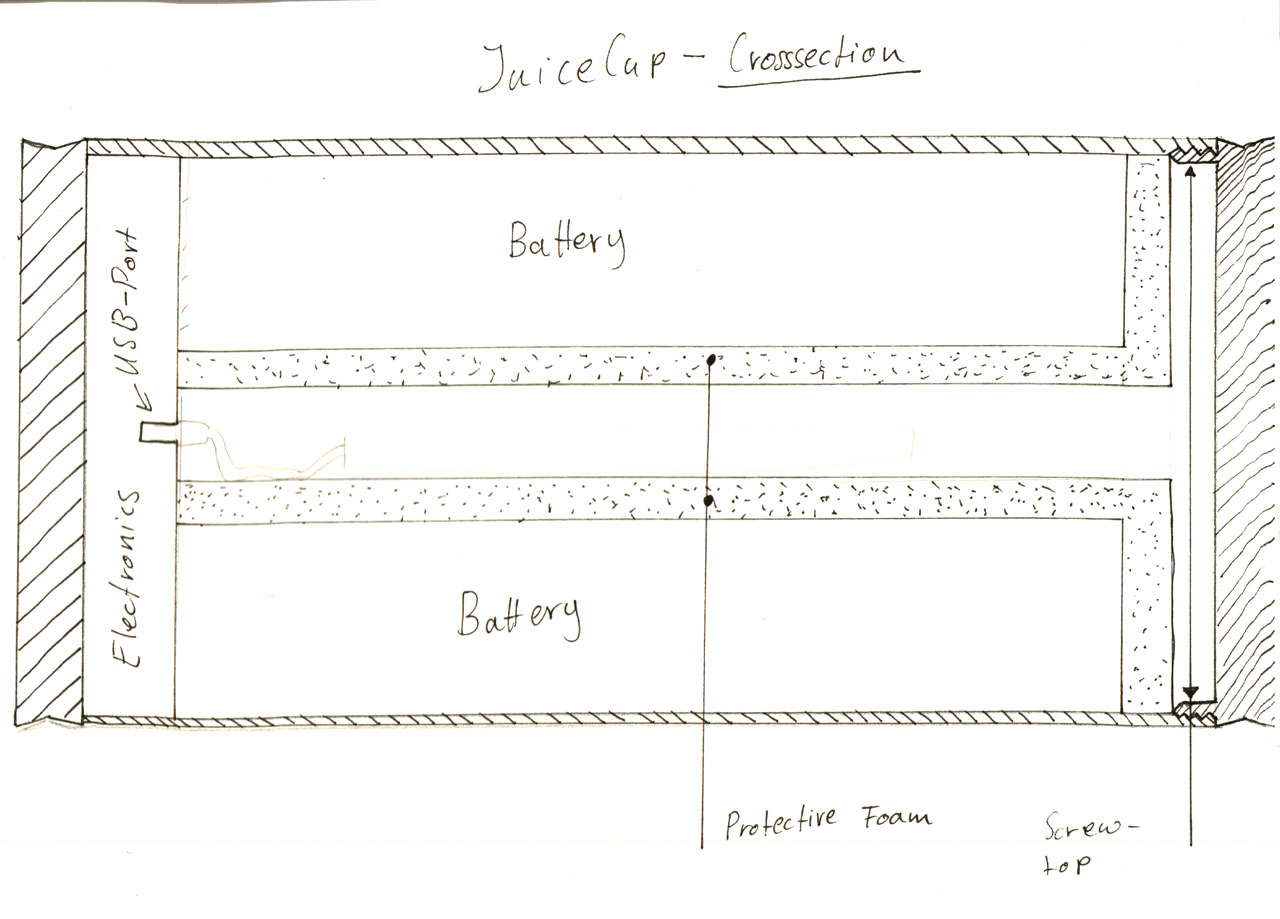 JuiceCup - Crosssection
Battery
USB-Port
Electronics
Battery
Protective Foam
Screw-
top